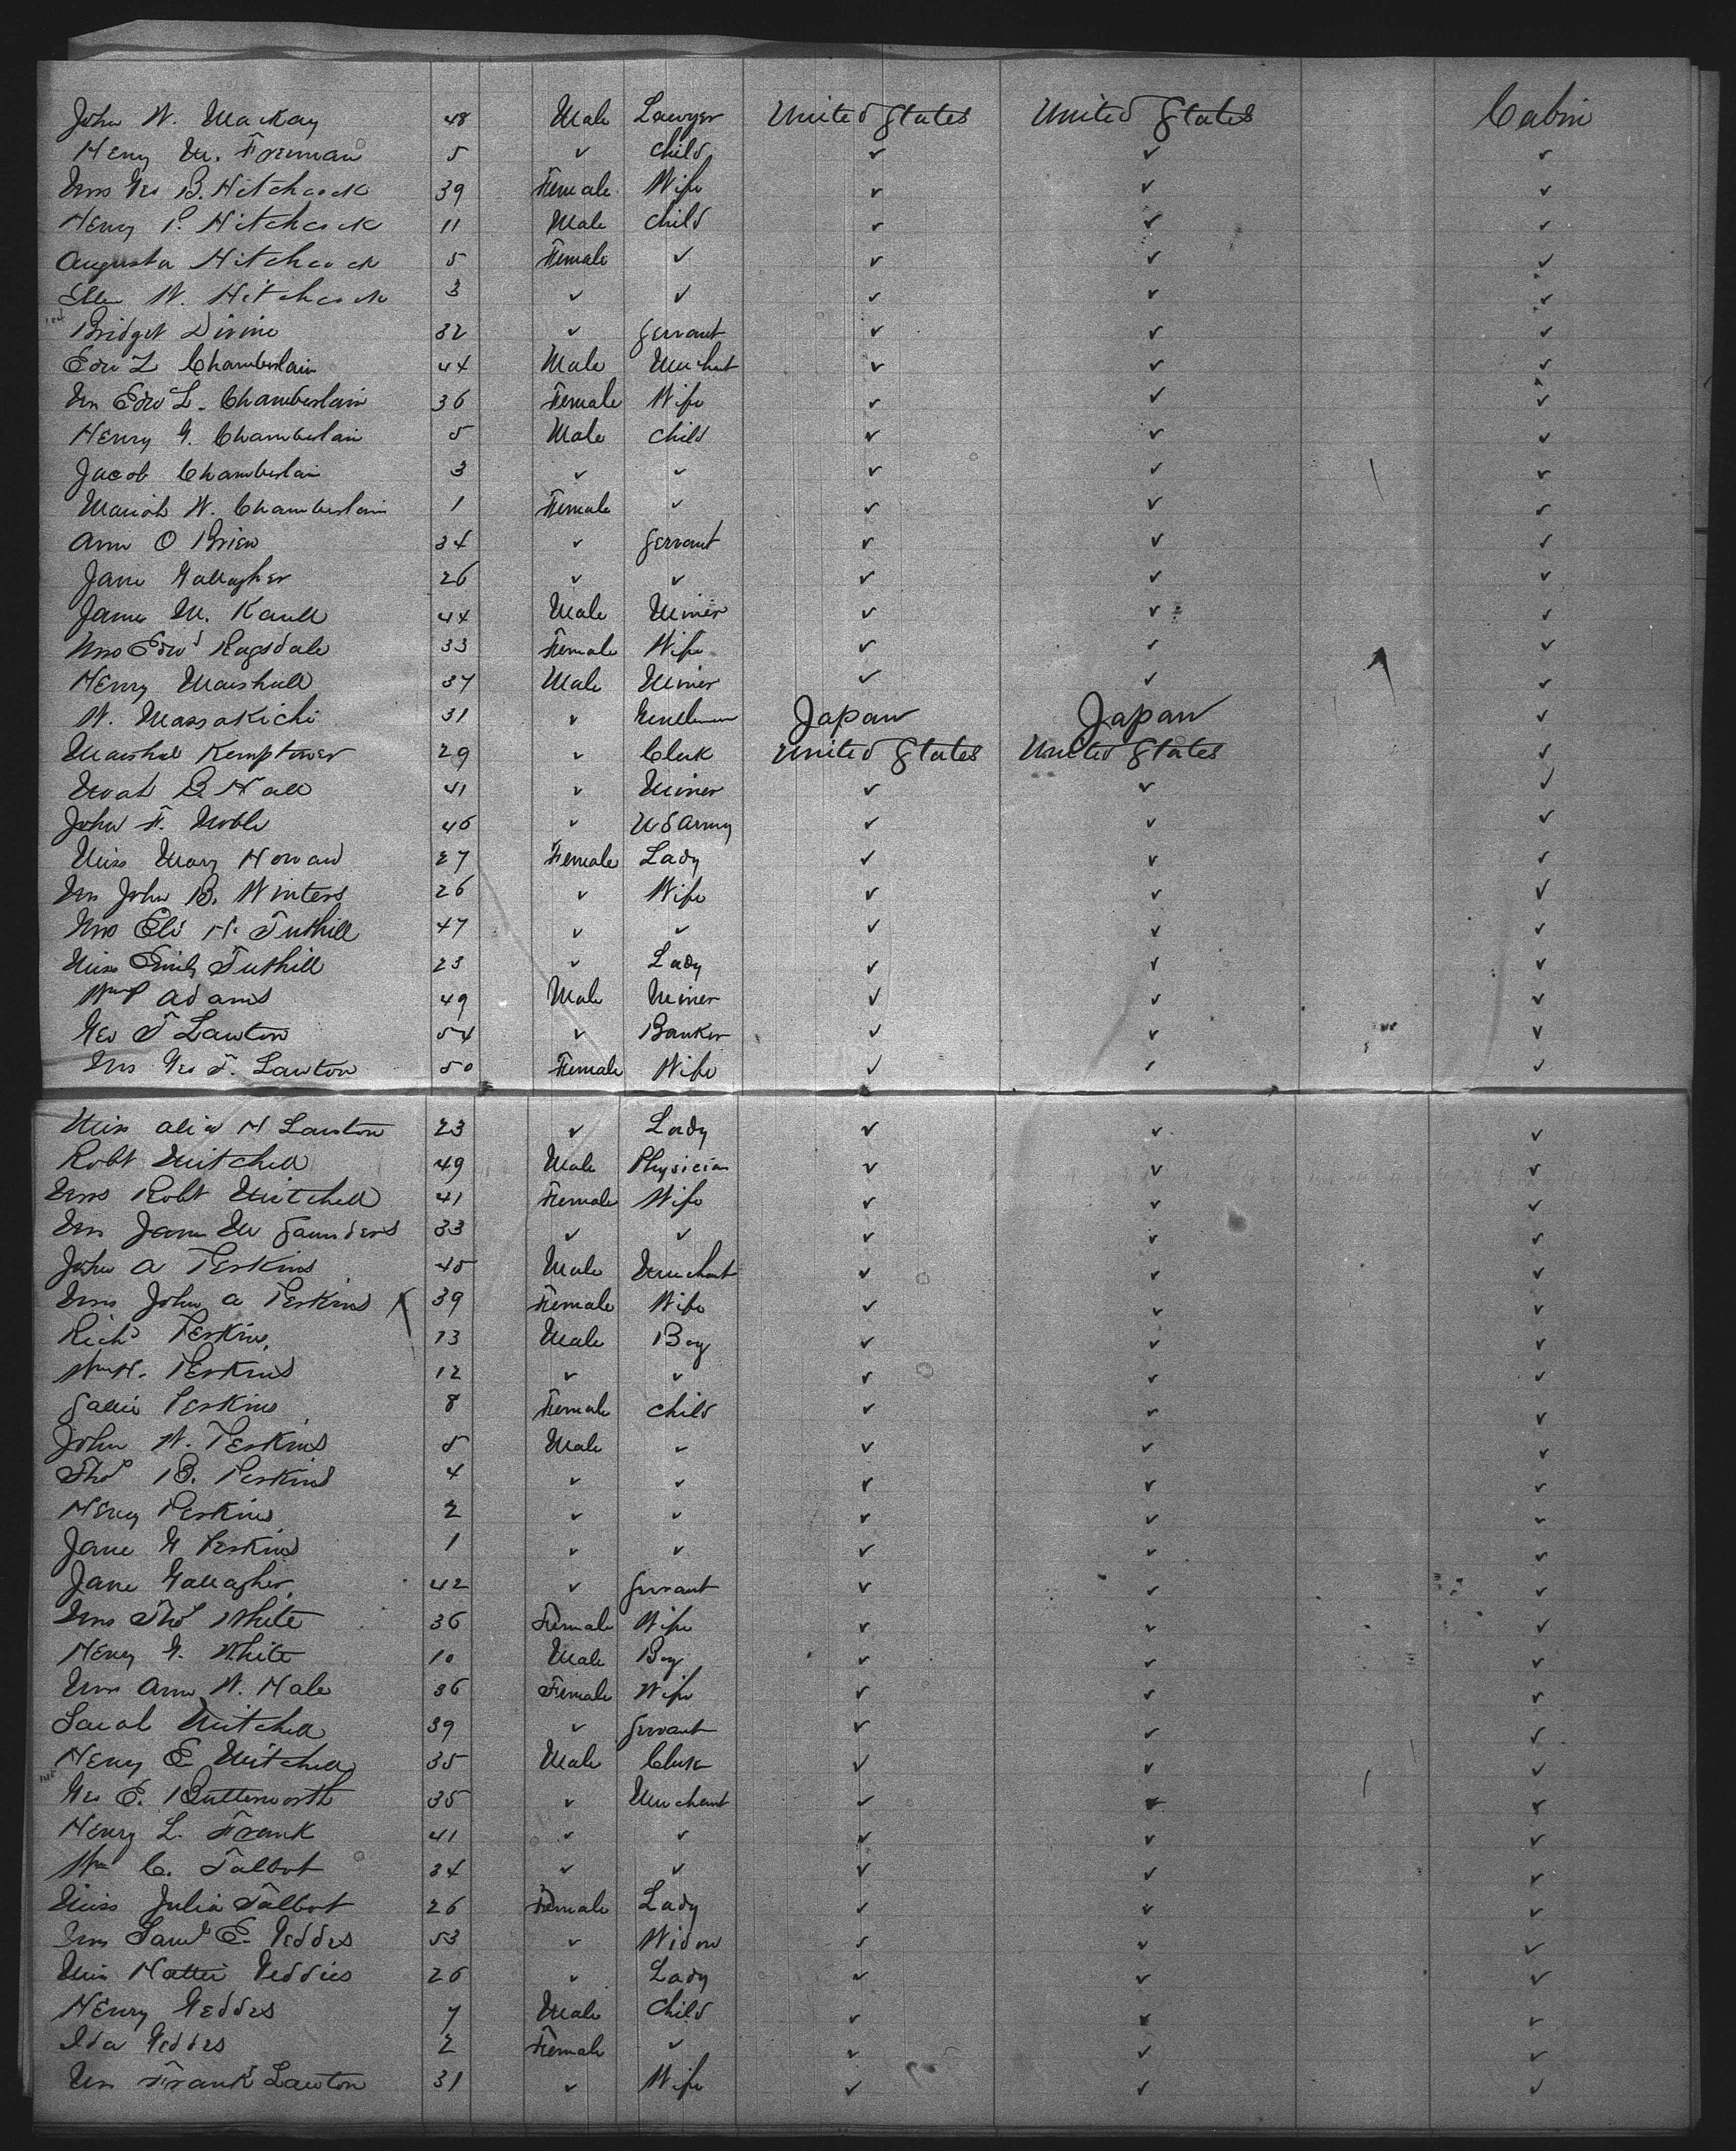 John W. Mackay 48 Male Lawyer United States United States Cabin
Henry M. Freeman 5 ✓ Child ✓ ✓ ✓
Mrs Geo B. Hitchcock 39 Female Wife ✓ ✓ ✓
Henry P. Hitchcock 11 Male Child ✓ ✓ ✓
Augusta Hitchcock 5 Female ✓ ✓ ✓ ✓
Ellen W. Hitchcock 3 ✓ ✓ ✓ ✓ ✓
Bridget Divine 32 ✓ Servant ✓ ✓ ✓
Edw L Chamberlain 44 Male Merchant ✓ ✓ ✓
Mrs Edw L. Chamberlain 36 Female Wife ✓ ✓ ✓
Henry G. Chamberlain 5 Male Child ✓ ✓ ✓
Jacob Chamberlain 3 ✓ ✓ ✓ ✓ ✓
Mariah W. Chamberlain 1 Female ✓ ✓ ✓ ✓
Ann O Brien 34 ✓ Servant ✓ ✓ ✓
Jane Gallagher 26 ✓ ✓ ✓ ✓ ✓
James M. 44 Male Miner ✓ ✓ ✓
Mrs Edwd Ragsdale 33 Female Wife ✓ ✓ ✓
Henry Marshall 37 Male Miner ✓ ✓ ✓
W. Massakichi 31 ✓ Gentleman Japan Japan ✓
Marshal Kemptower 29 ✓ Clerk United States United States ✓
Noah B. Hall 41 ✓ Miner ✓ ✓ ✓
John F. Noble 46 ✓ U S Army ✓ ✓ ✓
Miss Mary Howard 27 Female Lady ✓ ✓ ✓
Mrs John B. Winters 26 ✓ Wife ✓ ✓ ✓
Mrs Eli H. Tuthill 47 ✓ ✓ ✓ ✓ ✓
Miss Emily Tuthill 23 ✓ Lady ✓ ✓ ✓
Wm P Adams 49 Male Miner ✓ ✓ ✓
Geo F Lawton 54 ✓ Banker ✓ ✓ ✓
Mrs Geo F. Lawton 50 Female Wife ✓ ✓ ✓
Miss Alice H Lawton 23 ✓ Lady ✓ ✓ ✓
Robt Mitchell 49 Male Physician ✓ ✓ ✓
Mrs Robt Mitchell 41 Female Wife ✓ ✓ ✓
Mrs James M Saunders 33 ✓ ✓ ✓ ✓ ✓
John A Perkins 45 Male Merchant ✓ ✓ ✓
Mrs John A Perkins 39 Female Wife ✓ ✓ ✓
Richd Perkins 13 Male Boy ✓ ✓ ✓
Wm H. Perkins 12 ✓ ✓ ✓ ✓ ✓
Sallie Perkins 8 Female Child ✓ ✓ ✓
John W. Perkins 5 Male ✓ ✓ ✓ ✓
Thos B. Perkins 4 ✓ ✓ ✓ ✓ ✓
Henry Perkins 2 ✓ ✓ ✓ ✓ ✓
Jane G Perkins 1 ✓ ✓ ✓ ✓ ✓
Jane Gallagher 42 ✓ Servant ✓ ✓ ✓
Mrs Thos White 36 Female Wife ✓ ✓ ✓
Henry G. White 10 Male Boy ✓ ✓ ✓
Mrs Ann W. Hale 36 Female Wife ✓ ✓ ✓
Sarah Mitchell 39 ✓ Servant ✓ ✓ ✓
Henry E Mitchell 35 Male Clerk ✓ ✓ ✓
Geo E. Butterworth 35 ✓ Merchant ✓ ✓ ✓
Henry L. Frank 41 ✓ ✓ ✓ ✓ ✓
Wm C. Talbot 34 ✓ ✓ ✓ ✓ ✓
Miss Julia Talbot 26 Female Lady ✓ ✓ ✓
Mrs Saml E. Geddes 53 ✓ Widow ✓ ✓ ✓
Miss Hattie Geddes 26 ✓ Lady ✓ ✓ ✓
Henry Geddes 7 Male Child ✓ ✓ ✓
Ida Geddes 2 Female ✓ ✓ ✓ ✓
Mrs Frank Lawton 31 ✓ Wife ✓ ✓ ✓